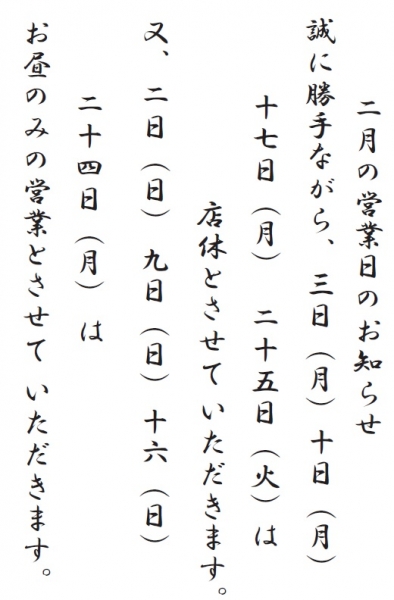 二月の営業日のお知らせ
誠に勝手ながら、三日（月）十日（月）
十七日（月）　二十五日（火）は
店休とさせていただきます。
又、二日（日）九日（日）十六（日）
二十四日（月）は
お昼のみの営業とさせて いただきます。